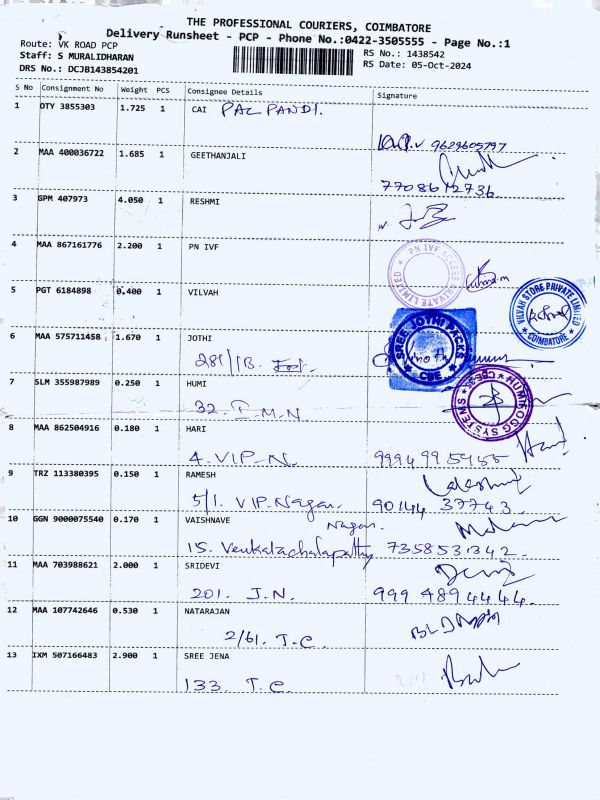 THE PROFESSIONAL COURIERS, COIMBATORE
Delivery Runsheet - PCP - Phone No.:0422-3505555 - Page No.:1
Route: VK ROAD PCP
RS No.: 1438542
Staff: S MURALIDHARAN
RS Date: 05-Oct-2024
DRS No.: DCJB143854201
S No Consignment No Weight PCS Consignee Details Signature
1 DTY 3855303 1.725 1 CAI PAL PANDI.
9629605797
2 MAA 400036722 1.685 1 GEETHANJALI
7708612736
3 GPM 407973 4.050 1 RESHMI
4 MAA 867161776 2.200 1 PN IVF
PN IVF ACCESS PRIVATE LIMITED
5 PGT 6184898 0.400 1 VILVAH
VILVAH STORE PRIVATE LIMITED COIMBATORE
6 MAA 575711458 1.670 1 JOTHI
281/1B.
SREE JOTHI PACKS CBE
7 SLM 355987989 0.250 1 HUMI
32. I.M.N
SYSTEMS
8 MAA 862504916 0.180 1 HARI
4. VIP-N. 9994995955
9 TRZ 113380395 0.150 1 RAMESH
5/1. VIP-Nagar. 90144 37743.
10 GGN 9000075540 0.170 1 VAISHNAVE
Nagar.
15. Venkatachalapathy 7358531342.
11 MAA 703988621 2.000 1 SRIDEVI
201. J.N. 9994894444.
12 MAA 107742646 0.530 1 NATARAJAN
2/61. T.C.
13 IXM 507166483 2.900 1 SREE JENA
133. T.C.